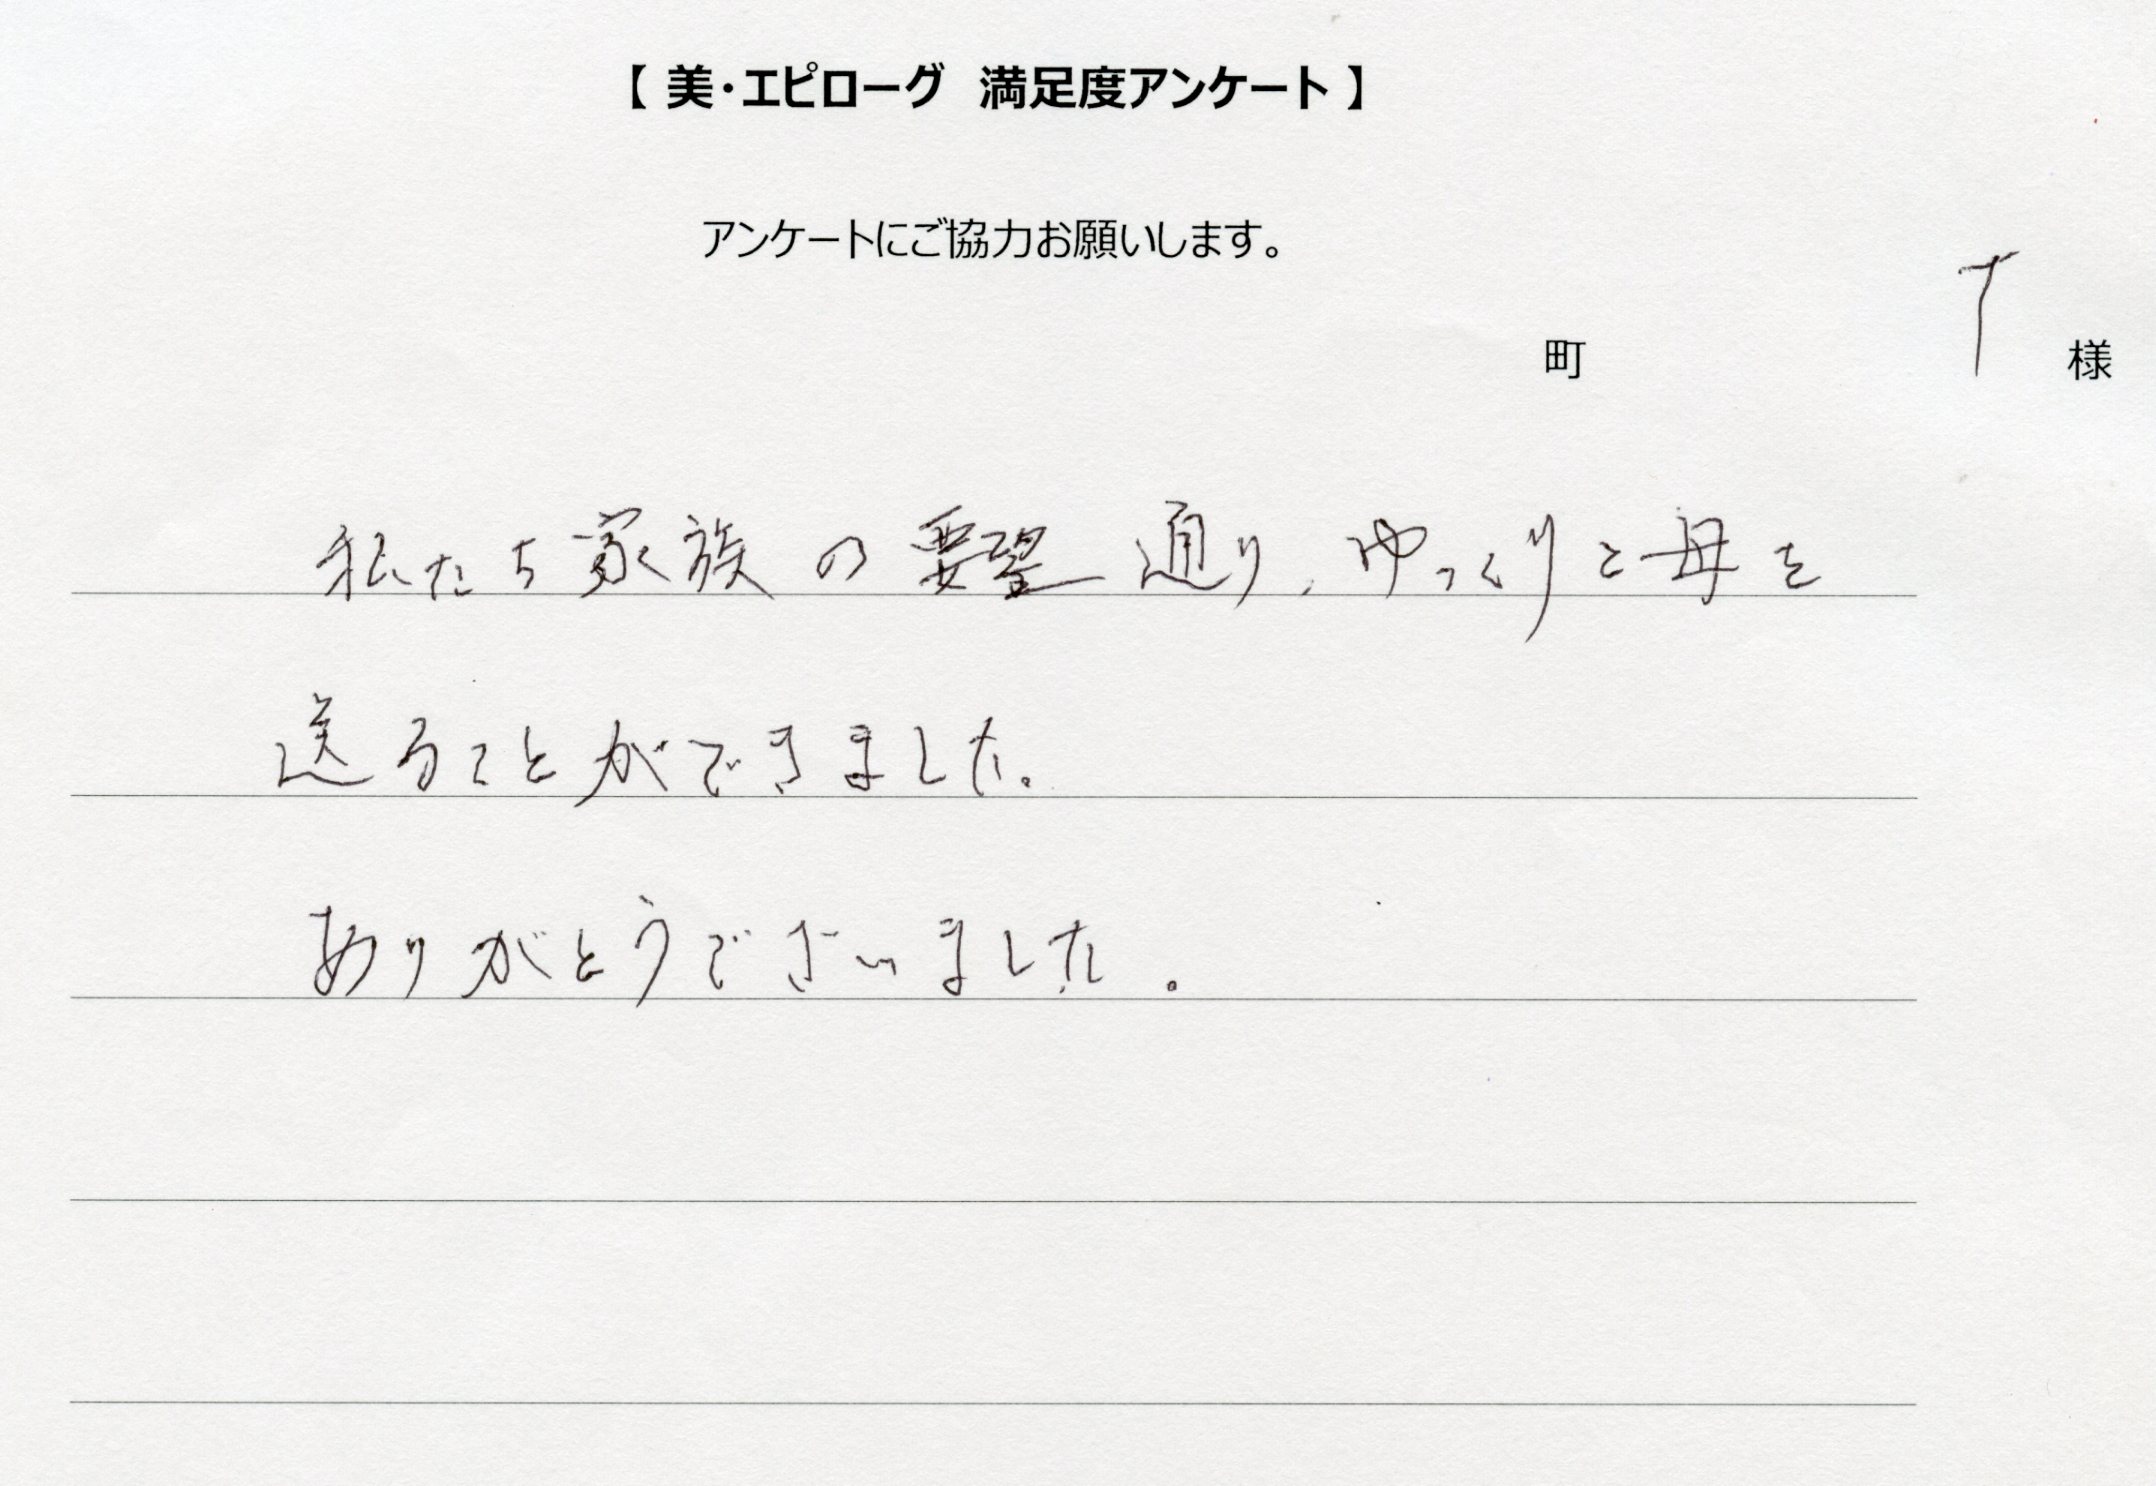 【 美・エピローグ 満足度アンケート 】
アンケートにご協力お願いします。
町 T 様
私たち家族の要望通り、ゆっくりと母を
送ることができました。
ありがとうございました。